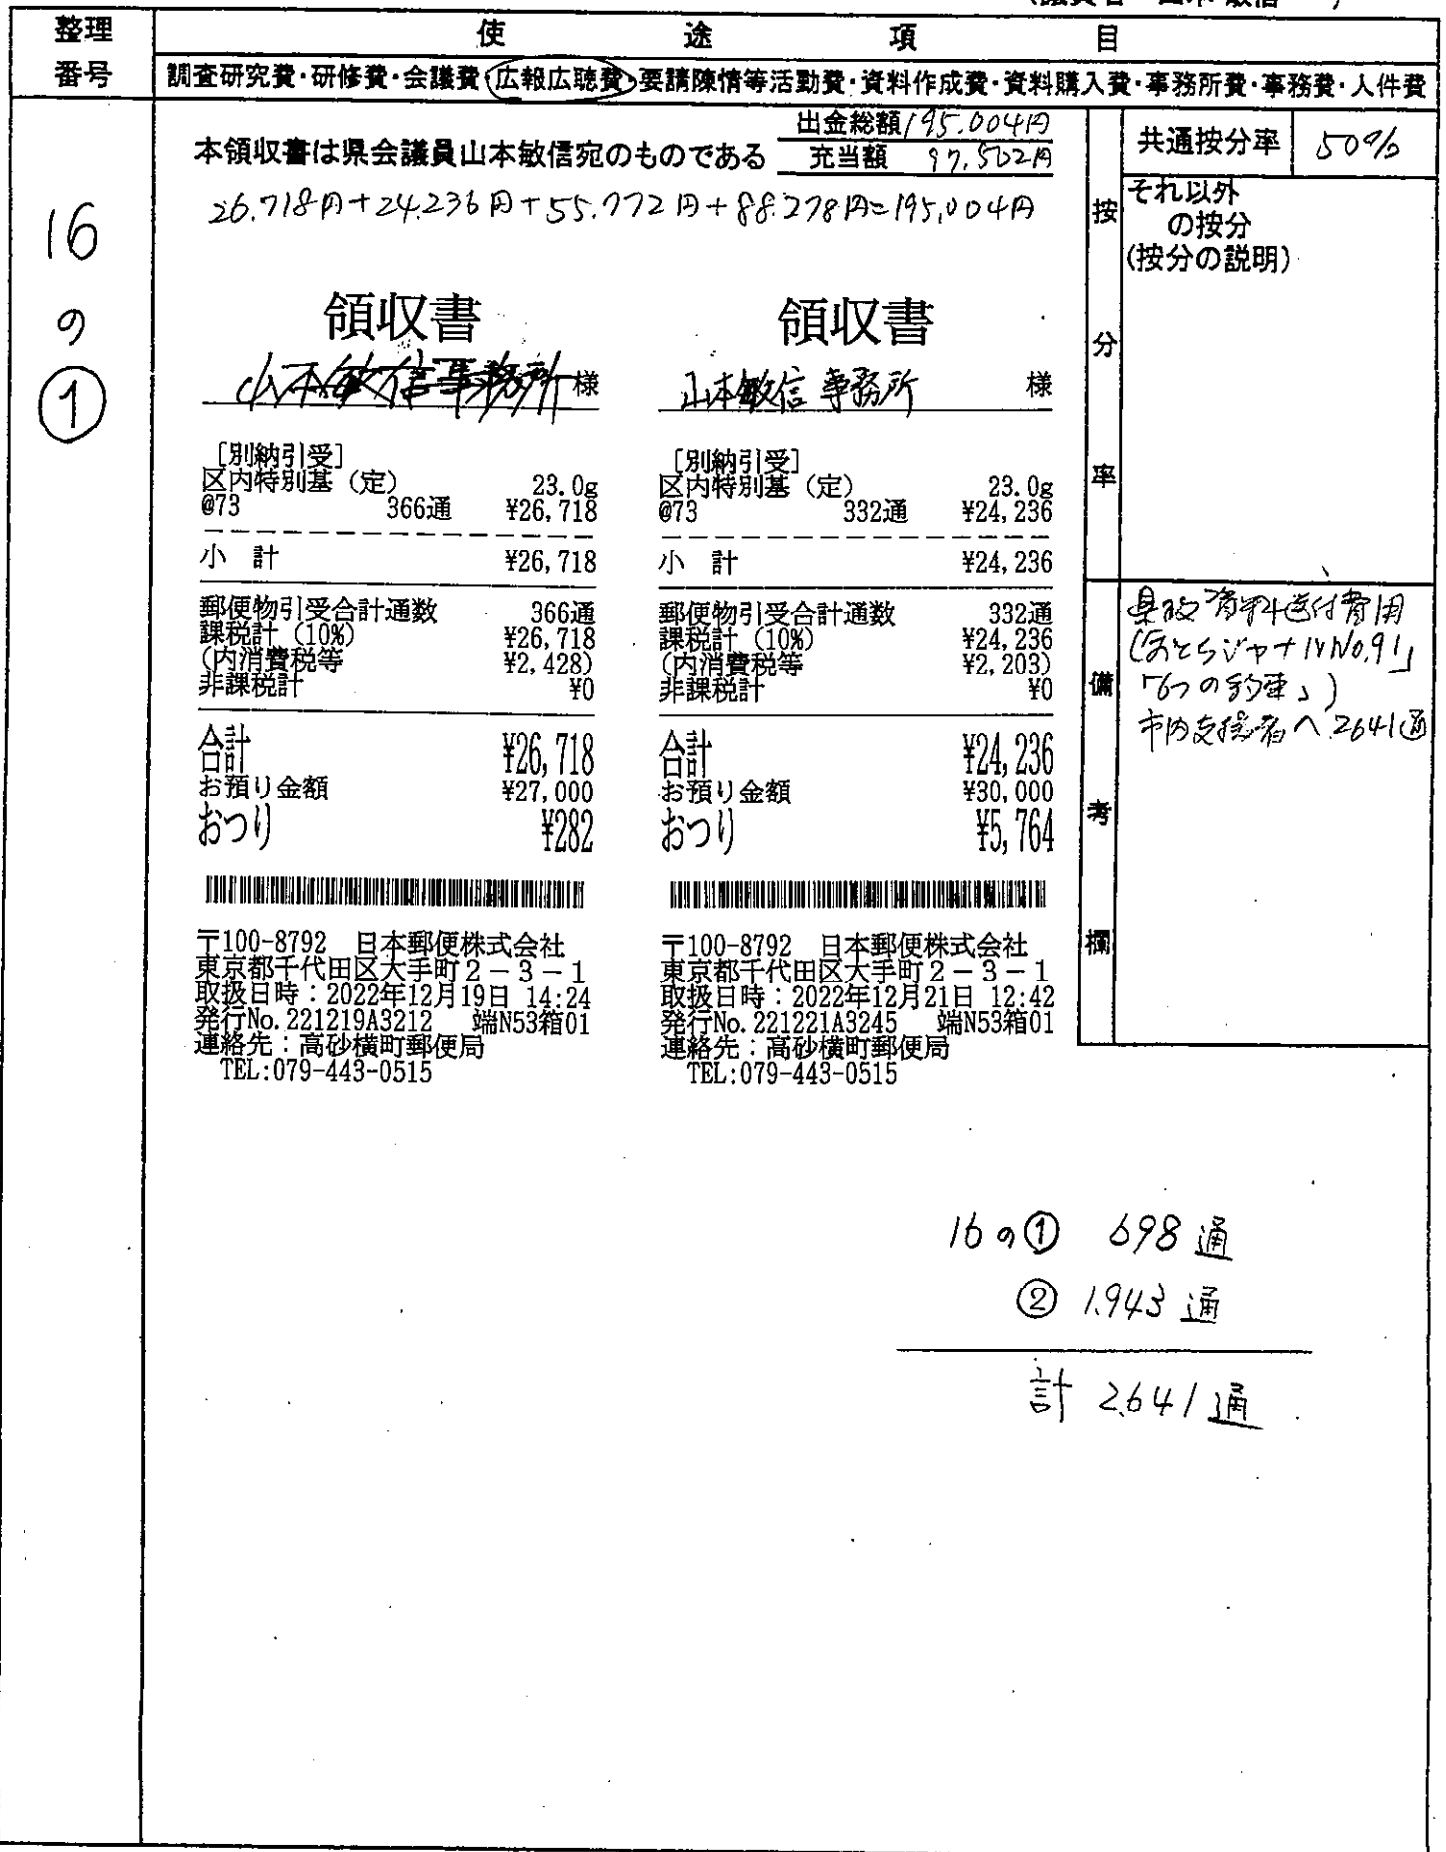 整理番号
使途項目
調査研究費・研修費・会議費・広報広聴費・要請陳情等活動費・資料作成費・資料購入費・事務所費・事務費・人件費
16
の
①
本領収書は県会議員山本敏信宛のものである
出金総額 195,004円
充当額 97,502円
26,718円+24,236円+55,772円+88,278円=195,004円
按分率
共通按分率 50%
それ以外
の按分
(按分の説明)
領収書
山本敏信事務所 様
[別納引受]
区内特別基(定) 23.0g
@73 366通 ¥26,718
小 計 ¥26,718
郵便物引受合計通数 366通
課税計(10%) ¥26,718
(内消費税等 ¥2,428)
非課税計 ¥0
合計 ¥26,718
お預り金額 ¥27,000
おつり ¥282
〒100-8792 日本郵便株式会社
東京都千代田区大手町2-3-1
取扱日時:2022年12月19日 14:24
発行No.221219A3212 端N53箱01
連絡先:高砂横町郵便局
TEL:079-443-0515
領収書
山本敏信事務所 様
[別納引受]
区内特別基(定) 23.0g
@73 332通 ¥24,236
小 計 ¥24,236
郵便物引受合計通数 332通
課税計(10%) ¥24,236
(内消費税等 ¥2,203)
非課税計 ¥0
合計 ¥24,236
お預り金額 ¥30,000
おつり ¥5,764
〒100-8792 日本郵便株式会社
東京都千代田区大手町2-3-1
取扱日時:2022年12月21日 12:42
発行No.221221A3245 端N53箱01
連絡先:高砂横町郵便局
TEL:079-443-0515
備考欄
県政資料送付費用
ジャナルNo.91」
「6つの約束」)
市内支援者へ2641通
16の① 698通
② 1,943通
計 2,641通